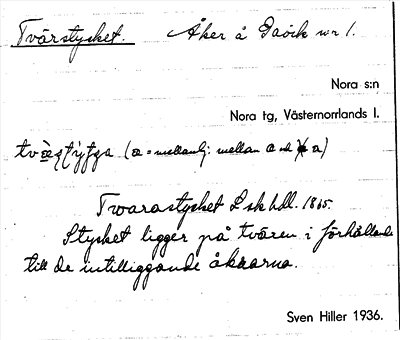 Tvärstycket. Åker å Gavik nr 1.
Nora s:n
Nora tg, Västernorrlands l.
(æ = mellanlj. mellan a och a)
Twarastycket L sk hdl. 1865.
Stycket ligger på tvären i förhållande
till de intilliggande åkrarna.
Sven Hiller 1936.